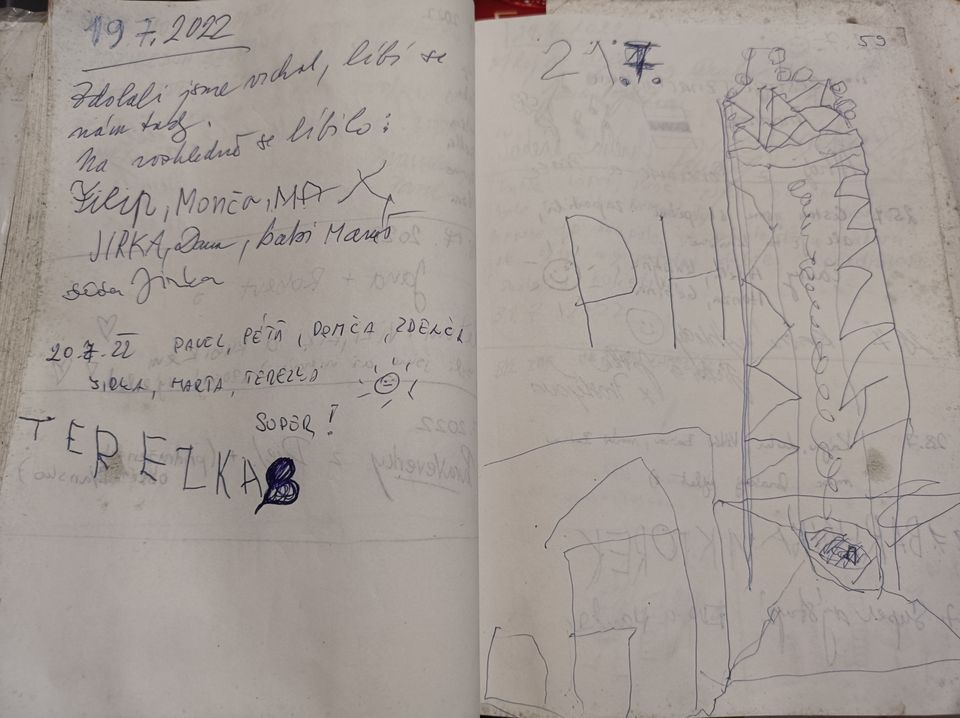 19 7. 2022
Zdolali jsme vrchol, líbí se
nám tady.
Na rozhledně se líbilo:
Filip, Monča, MAX,
JIRKA, Dana, babi Marub
děda Jirka
20.7.22 PAVEL, PÉŤA, DOMČA, ZDENČA
JIRKA, MARTA, TEREZKA
SUPER!
TEREZKA
59
21.7.
DH